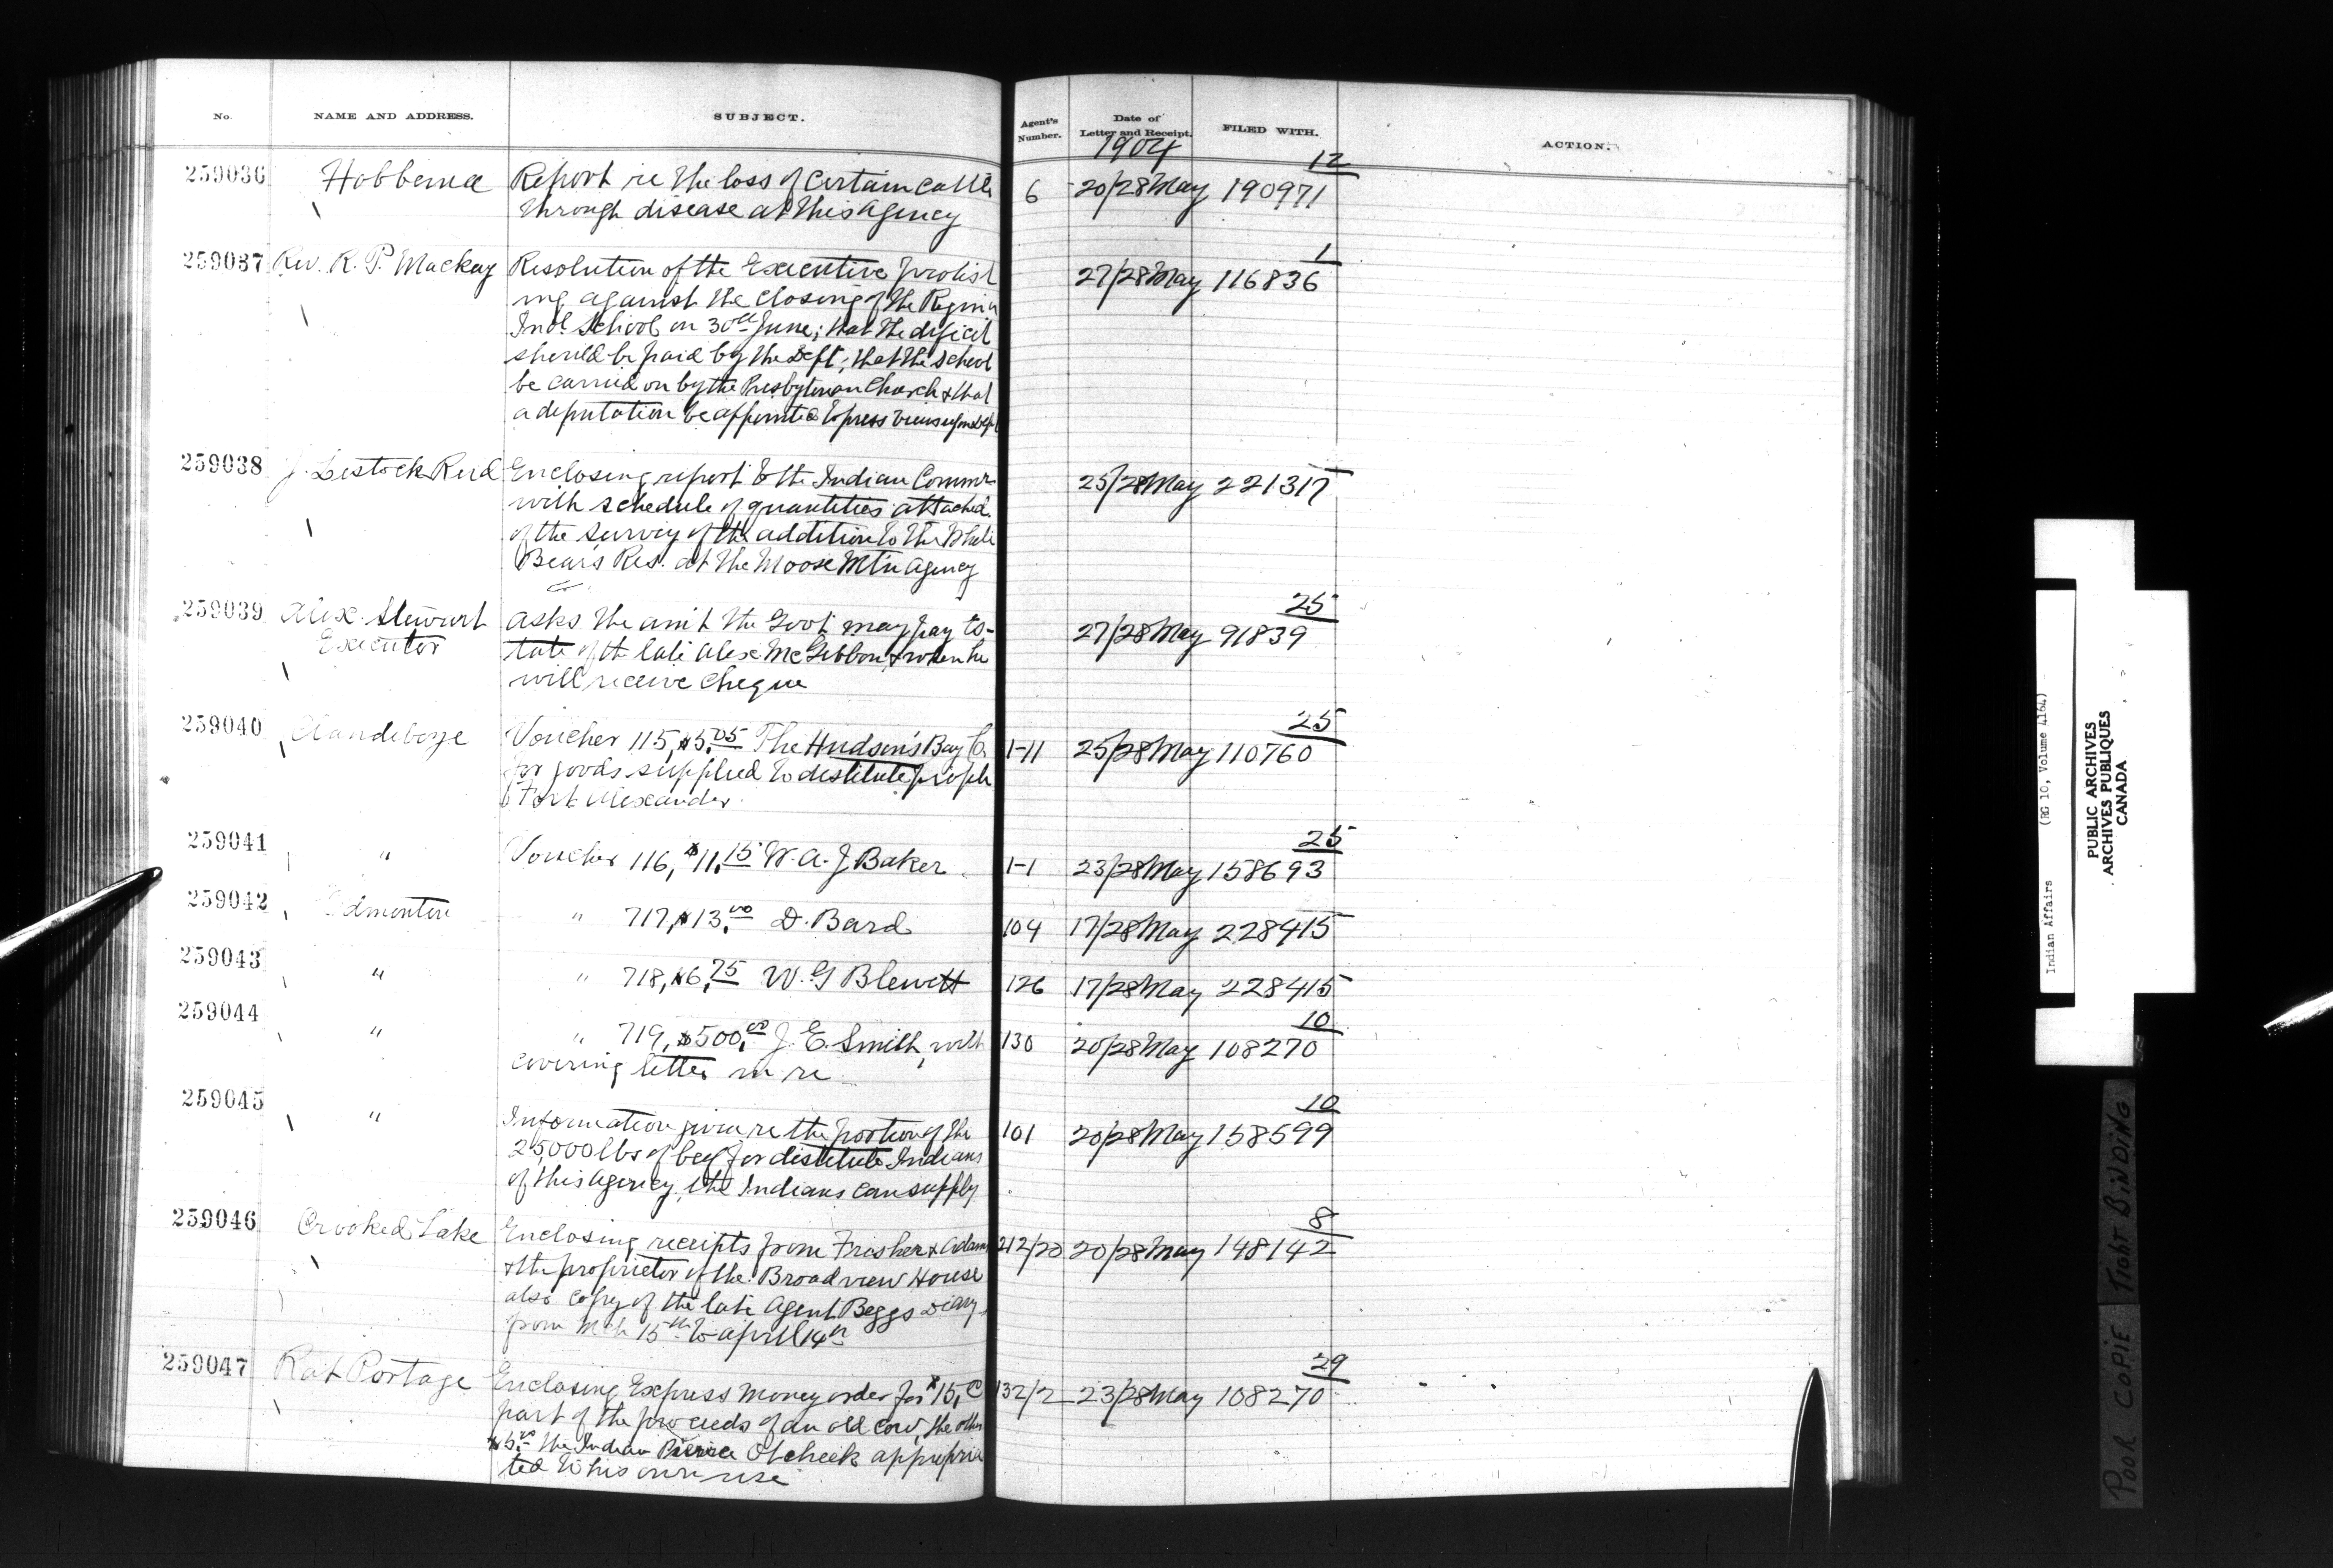 No. NAME AND ADDRESS. SUBJECT. Agent's Number. Date of Letter and Receipt. FILED WITH. ACTION.
1904
12
259036 Hobbema Report re the loss of certain cattle 6 20/28 May 190971
through disease at this agency
1
259037 Rev. R. P. Mackay Resolution of the Executive protest 27/28 May 116836
ing against the closing of the Regina
Ind'l School on 30th June; that the deficit
should be paid by the Dept; that the school
be carried on by the Presbyterian Church & that
a deputation be appointed to press views upon Dept
259038 J. Lestock Reid Enclosing report to the Indian Commr 25/28 May 221317
with schedule of quantities attached
of the survey of the addition to the White
Bear's Res. at the Moose Mt'n Agency
25
259039 Alex. Stewart asks the am't the Govt may pay Es- 27/28 May 91839
Executor tate of the late Alex McGibbon, & when he
will receive cheque
25
259040 Clandeboye Voucher 115, $5.05 The Hudson's Bay Co. 1-11 25/28 May 110760
for goods supplied to destitute people
Fort Alexander.
25
259041 " Voucher 116, $11.15 W. A. J. Baker 1-1 23/28 May 158693
259042 Edmonton " 717, $13.00 D. Bard 104 17/28 May 228415
259043 " " 718, $6.75 W. G Blewett 126 17/28 May 228415
10
259044 " " 719, $500.00 J. E. Smith, with 130 20/28 May 108270
covering letter in re
10
259045 " Information given re the portion of the 101 20/28 May 158599
25,000 lbs of beef for destitute Indians
of this agency, the Indians can supply
8
259046 Crooked Lake Enclosing receipts from Frasher & Adams 212/20 20/28 May 148142
& the proprietor of the Broadview House
also copy of the late Agent Beggs Diary
from Mch 15th to April 14th
29
259047 Rat Portage Enclosing Express Money order for $15, 132/2 23/28 May 108270
part of the proceeds of an old cow, the other
$5.00 the Indian Pierre Otcheek appropria
ted to his own use
Indian Affairs (RG 10, Volume 4164)
PUBLIC ARCHIVES
ARCHIVES PUBLIQUES
CANADA
POOR COPIE TIGHT BINDING